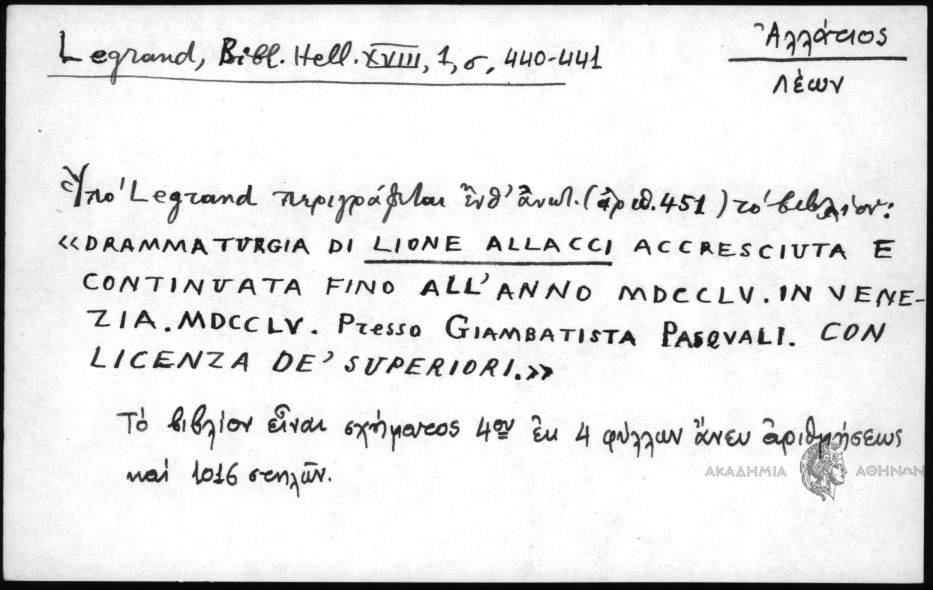 Legrand, Bibl. Hell. XVIII, 1, σ, 440-441
Ἀλλάτιος
Λέων
Ὑπὸ Legrand περιγράφεται ἔνθ' ἀνωτ. (ἀριθ. 451) τὸ βιβλίον:
«DRAMMATURGIA DI LIONE ALLACCI ACCRESCIUTA E
CONTINUATA FINO ALL' ANNO MDCCLV. IN VENE-
ZIA. MDCCLV. Presso GIAMBATISTA PASQVALI. CON
LICENZA DE' SUPERIORI.»
Τὸ βιβλίον εἶναι σχήματος 4ου ἐκ 4 φύλλων ἄνευ ἀριθμήσεως
καὶ 1016 στηλῶν.
ΑΚΑΔΗΜΙΑ ΑΘΗΝΩΝ